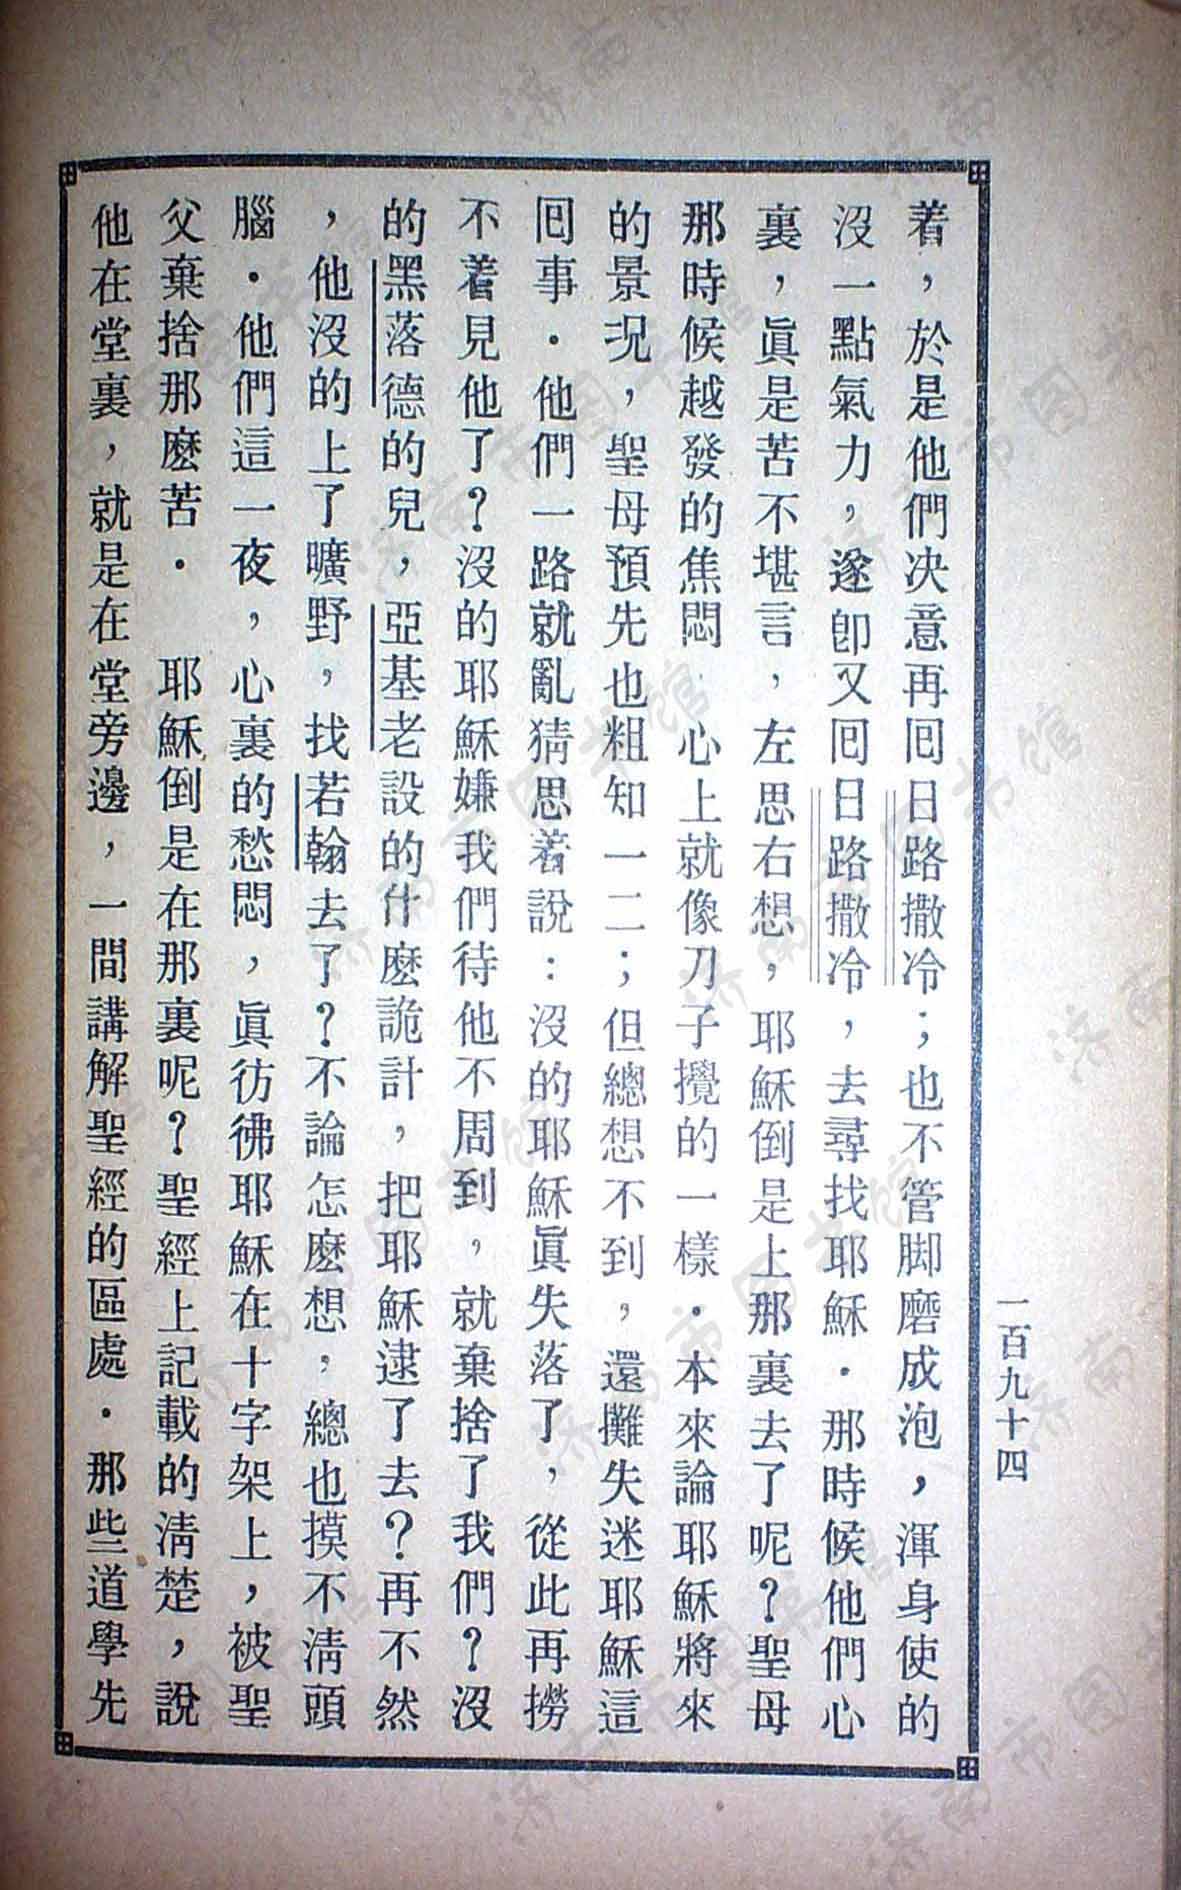 一百九十四
着，於是他們決意再囘日路撒冷；也不管脚磨成泡，渾身使的
沒一點氣力，遂卽又囘日路撒冷，去尋找耶穌．那時候他們心
裏，眞是苦不堪言，左思右想，耶穌倒是上那裏去了呢？聖母
那時候越發的焦悶　心上就像刀子攪的一樣．本來論耶穌將來
的景況，聖母預先也粗知一二；但總想不到，還攤失迷耶穌這
囘事．他們一路就亂猜思着說：沒的耶穌眞失落了，從此再撈
不着見他了？沒的耶穌嫌我們待他不周到，就棄捨了我們？沒
的黑落德的兒，亞基老設的什麽詭計，把耶穌逮了去？再不然
，他沒的上了曠野，找若翰去了？不論怎麽想，總也摸不淸頭
腦．他們這一夜，心裏的愁悶，眞彷彿耶穌在十字架上，被聖
父棄捨那麽苦．　耶穌倒是在那裏呢？聖經上記載的淸楚，說
他在堂裏，就是在堂旁邊，一間講解聖經的區處．那些道學先
济南市图书馆